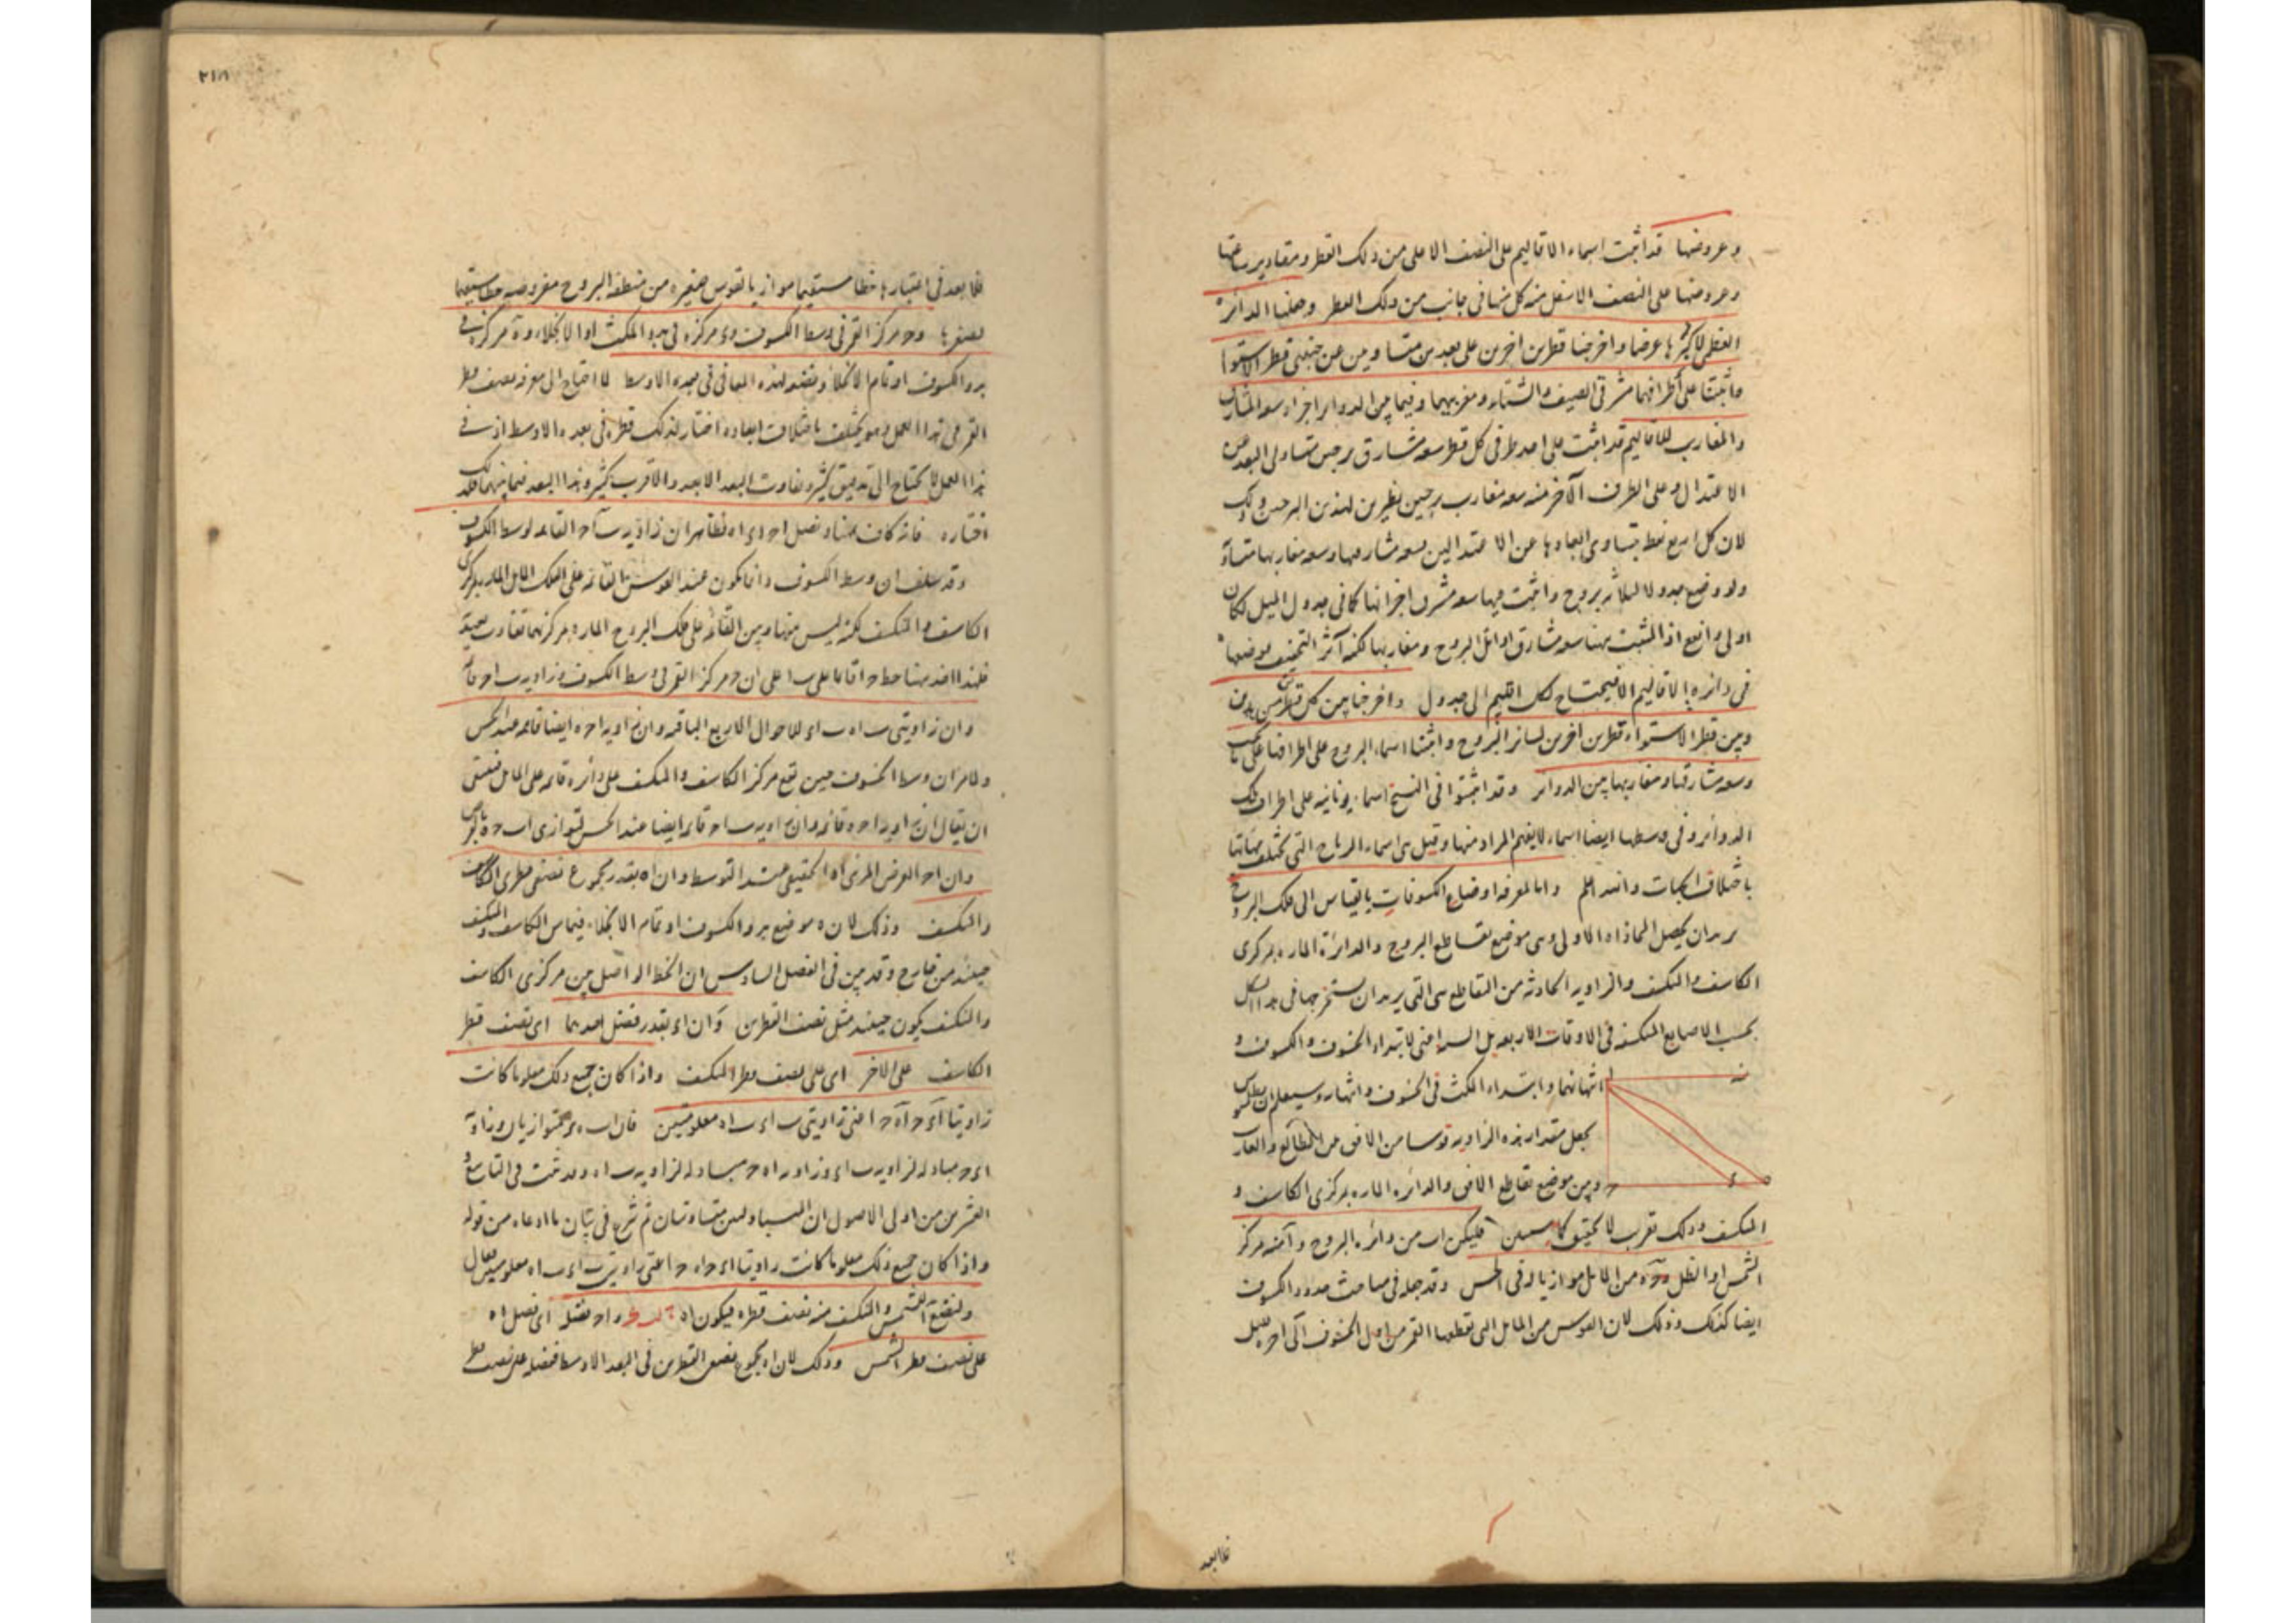 وعروضها قد اثبت اسماء الاقاليم على النصف الاعلى من ذلك القطر ومقادير ساعاتها
وعروضها على النصف الاسفل منه كل منها فى جانب من ذلك القطر وجعلنا الدائرة
العظمى لاكثرها عرضا واخرجنا قطرين اخرين على بعدين متساويين عن جنبتى قطر الاستواء
واثبتنا على اطرافهما مشرقى الصيف والشتاء ومغربيهما وفيما بين الدوائر اجزاء سعة المشارق
والمغارب للاقاليم قد اثبت على احد طرفى كل قطر سعة مشارق برجين متساوى البعد عن
الاعتدال وعلى الطرف الآخر منه سعة مغارب برجين نظيرين لهذين البرجين وذلك
لان كل اربع نقط يتساوى ابعادها عن الاعتدالين فسعة مشارقها وسعة مغاربها متساوية
ولو وضع جدولا لثلاثة بروج واثبت فيها سعة مشرق اجزائها كما فى جدول الميل لكان
اولى وانفع اذ المثبت هنا سعة مشارق اوائل البروج ومغاربها لكنه آثر التخفيف موضعها
فى دائرة الاقاليم لا فيحتاج لكل اقليم الى جدول واخرجنا بين كل قطرين من هذين
وبين قطر الاستواء قطرين اخرين لسائر البروج واثبتنا اسماء البروج على اطرافها على ما يجب
وسعة مشارقها ومغاربها بين الدوائر وقد اثبتوا فى النسخ اسماء يونانية على اطراف تلك
الدوائر وفى وسطها ايضا اسماء لا يفهم المراد منها وقيل هى اسماء الرياح التى تختلف مهابها
باختلاف الجهات والله اعلم واما لمعرفة اوضاع الكسوفات بالقياس الى فلك البروج
يريد ان يحصل المحاذاة الاولى وهى موضع تقاطع البروج والدائرة المارة بمركزى
الكاسف والمنكسف والزاوية الحادثة من التقاطع هى التى يريد ان يستخرجها فى هذا الشكل
بحسب الاصابع المنكسفة فى الاوقات الاربعة بل السـ اعنى لابتداء الخسوف والكسوف و
انتهائهما وابتداء المكث فى الخسوف وانتهاؤه وسيعلم ان بطلميوس
يجعل مقدار هذه الزاوية قوسا من الافق من الطالع والغارب
وبين موضع تقاطع الافق والدائرة المارة بمركزى الكاسف و
المنكسف وذلك تقريب لا تحقيق كما سيبين فليكن اب من دائرة البروج وآ منه مركز
الشمس او الظل وحـه من المائل موازيا له فى الحس وقد جعله فى مباحث حدود الكسوف
ايضا كذلك وذلك لان القوس من المائل التى يقطعها القمر من اول الخسوف الى آخره قليل
فلا بعد
٢١٨
فلا بعد فى اعتبارها خطا مستقيما موازيا لقوس صغيرة من منطقة البروج مفروضة خطا مستقيما
لصغرها وحـ مركز القمر فى وسط الكسوف وى مركزه فى بدو المكث او الانجلاء وه مركزه فى
بدو الكسوف او تمام الانجلاء ولنضع لهذه المعانى فى بعده الاوسط لما احتاج الى معرفة نصف قطر
القمر فى هذا العمل وهو يختلف باختلاف ابعاده اختار لذلك قطره فى بعده الاوسط اذ فى
هذا العمل لا يحتاج الى تدقيق كثير وتفاوت البعد الابعد والاقرب كثير وهذا البعد فيما بينهما فلذلك
اختاره فانه كاف ههنا ونصل احـ اى اه فظاهر ان زاوية ب احـ القائمة لوسط الكسوف
وقد سلف ان وسط الكسوف دائما يكون عند القوس القائمة على الفلك المائل المارة بمركزى
الكاسف والمنكسف لكنه ليس بينها وبين القائمة على فلك البروج المارة بمركزيهما تفاوت يعتد به
فلهذا اخذ ههنا خط حـا قائما على ب ا على ان حـ مركز القمر فى وسط الكسوف وزاوية ب احـ قائمة
وان زاويتى ب اه ب اى للاحوال الاربع الباقية وان زاوية احـه ايضا قائمة عند الحس
ولما مر ان وسط الخسوف حين يقع مركز الكاسف والمنكسف على دائرة قائمة على المائل فينبغى
ان يقال ان زاوية احـه قائمة وان زاوية ب احـ قائمة ايضا عند الحس لتوازى اب حـه بالحس
وان احـ العرض المرئى او الحقيقى عند التوسط وان اه بقدر مجموع نصفى قطرى الكاسف
والمنكسف وذلك لان ه موضع بدو الكسوف او تمام الانجلاء فيماس الكاسف والمنكسف
حينئذ من خارج وقد بين فى الفصل السادس ان الخط الواصل بين مركزى الكاسف
والمنكسف يكون حينئذ مثل نصف القطرين وان اى بقدر فضل احدهما اى نصف قطر
الكاسف على الآخر اى على نصف قطر المنكسف واذا كان جميع ذلك معلوما كانت
زاويتا اى حـ اه حـ اعنى زاويتى ب اى ب اه معلومتين فان اب ه حـ متوازيان وزاوية
اى حـ مبادلة لزاوية ب اى وزاوية اه حـ مبادلة لزاوية ب اه وقد ثبت فى التاسع و
العشرين من اولى الاصول ان المتبادلتين متساويتان ثم شرع فى بيان ما ادعاه من قوله
واذا كان جميع ذلك معلوما كانت زاويتا اى حـ اه حـ اعنى زاويتى ب اى ب اه معلومتين فقال
ولنضع الشمس والمنكسف منه نصف قطره فيكون اه واحـ فضل اى فضل اه
على نصف قطر الشمس وذلك لان اه مجموع نصفى القطرين فى البعد الاوسط ففضله على نصف قطر